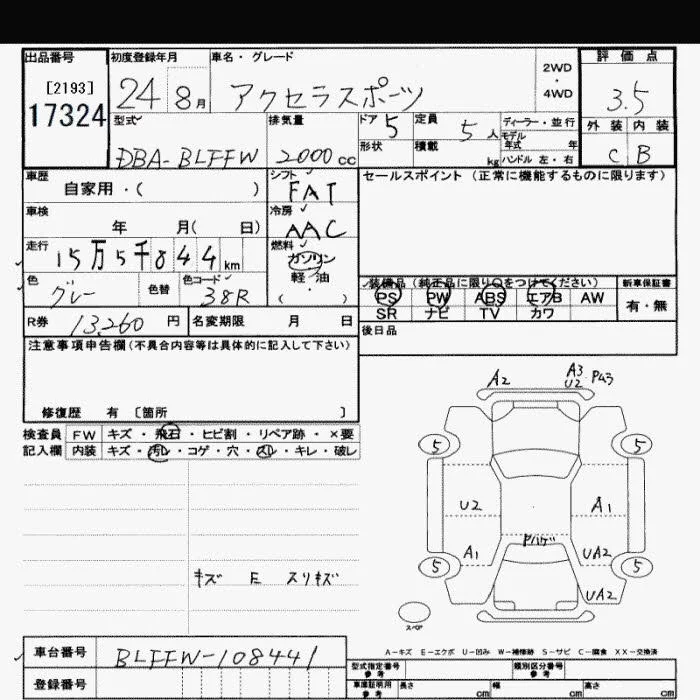 出品番号 初度登録年月 車名・グレード 評価点
[2193] 24 8月 アクセラスポーツ 2WD・4WD 3.5
17324
型式 排気量 ドア 5 定員 5人 ディーラー・並行 外装 内装
モデル年式 年
DBA-BLFFW 2000cc 形状 積載 kg ハンドル 左・右 C B
車歴 シフト セールスポイント(正常に機能するものに限ります)
自家用・( ) FAT
車検 冷房
年 月( 日) AAC
走行 燃料
15万5千844km ガソリン
軽・油
色 色替 色コード ( )
グレー 38R
装備品(純正品に限り○をつけてください) 新車保証書
PS PW ABS エアB AW 有・無
SR ナビ TV カワ
R券 13,260円 名変期限 月 日 後日品
注意事項申告欄(不具合内容等は具体的に記入して下さい)
修復歴 有 〔箇所 〕
検査員 FW キズ・飛石・ヒビ割・リペア跡・×要
記入欄 内装 キズ・汚レ・コゲ・穴・スレ・キレ・破レ
キズ E スリキズ
A2 A3 U2 P43
5 5
U2 A1
Pハゲ
A1 UA2
5 5
UA2
スペア
A-キズ E-エクボ U-凹み W-補修跡 S-サビ C-腐食 XX-交換済
車台番号 BLFFW-108441
登録番号
型式指定番号 参考 類別区分番号 参考
車庫証明用 参考 長さ cm 幅 cm 高さ cm